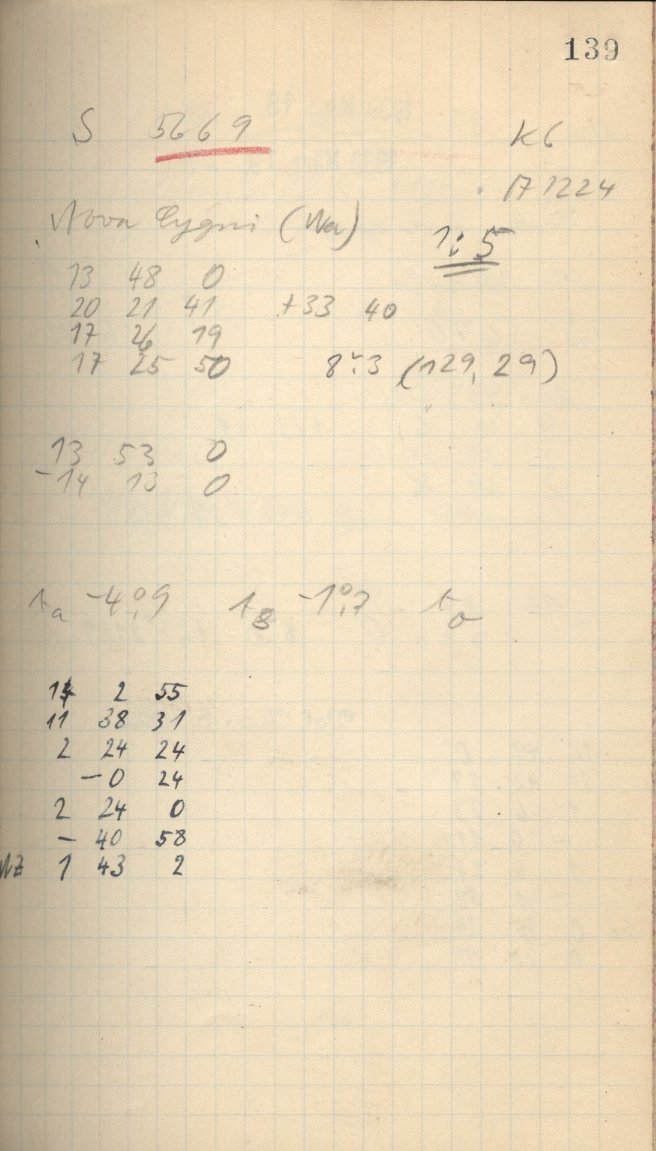 139
S 5669 K6
171224
Nova Cygni (Wa)
1:5
13 48 0
20 21 41 +33 40
17 26 19
17 25 50 8:3 (129, 29)
13 53 0
-14 13 0
ta -4°,9 tB -1°,7 to
14 2 55
11 38 31
2 24 24
-0 24
2 24 0
- 40 58
MZ 1 43 2